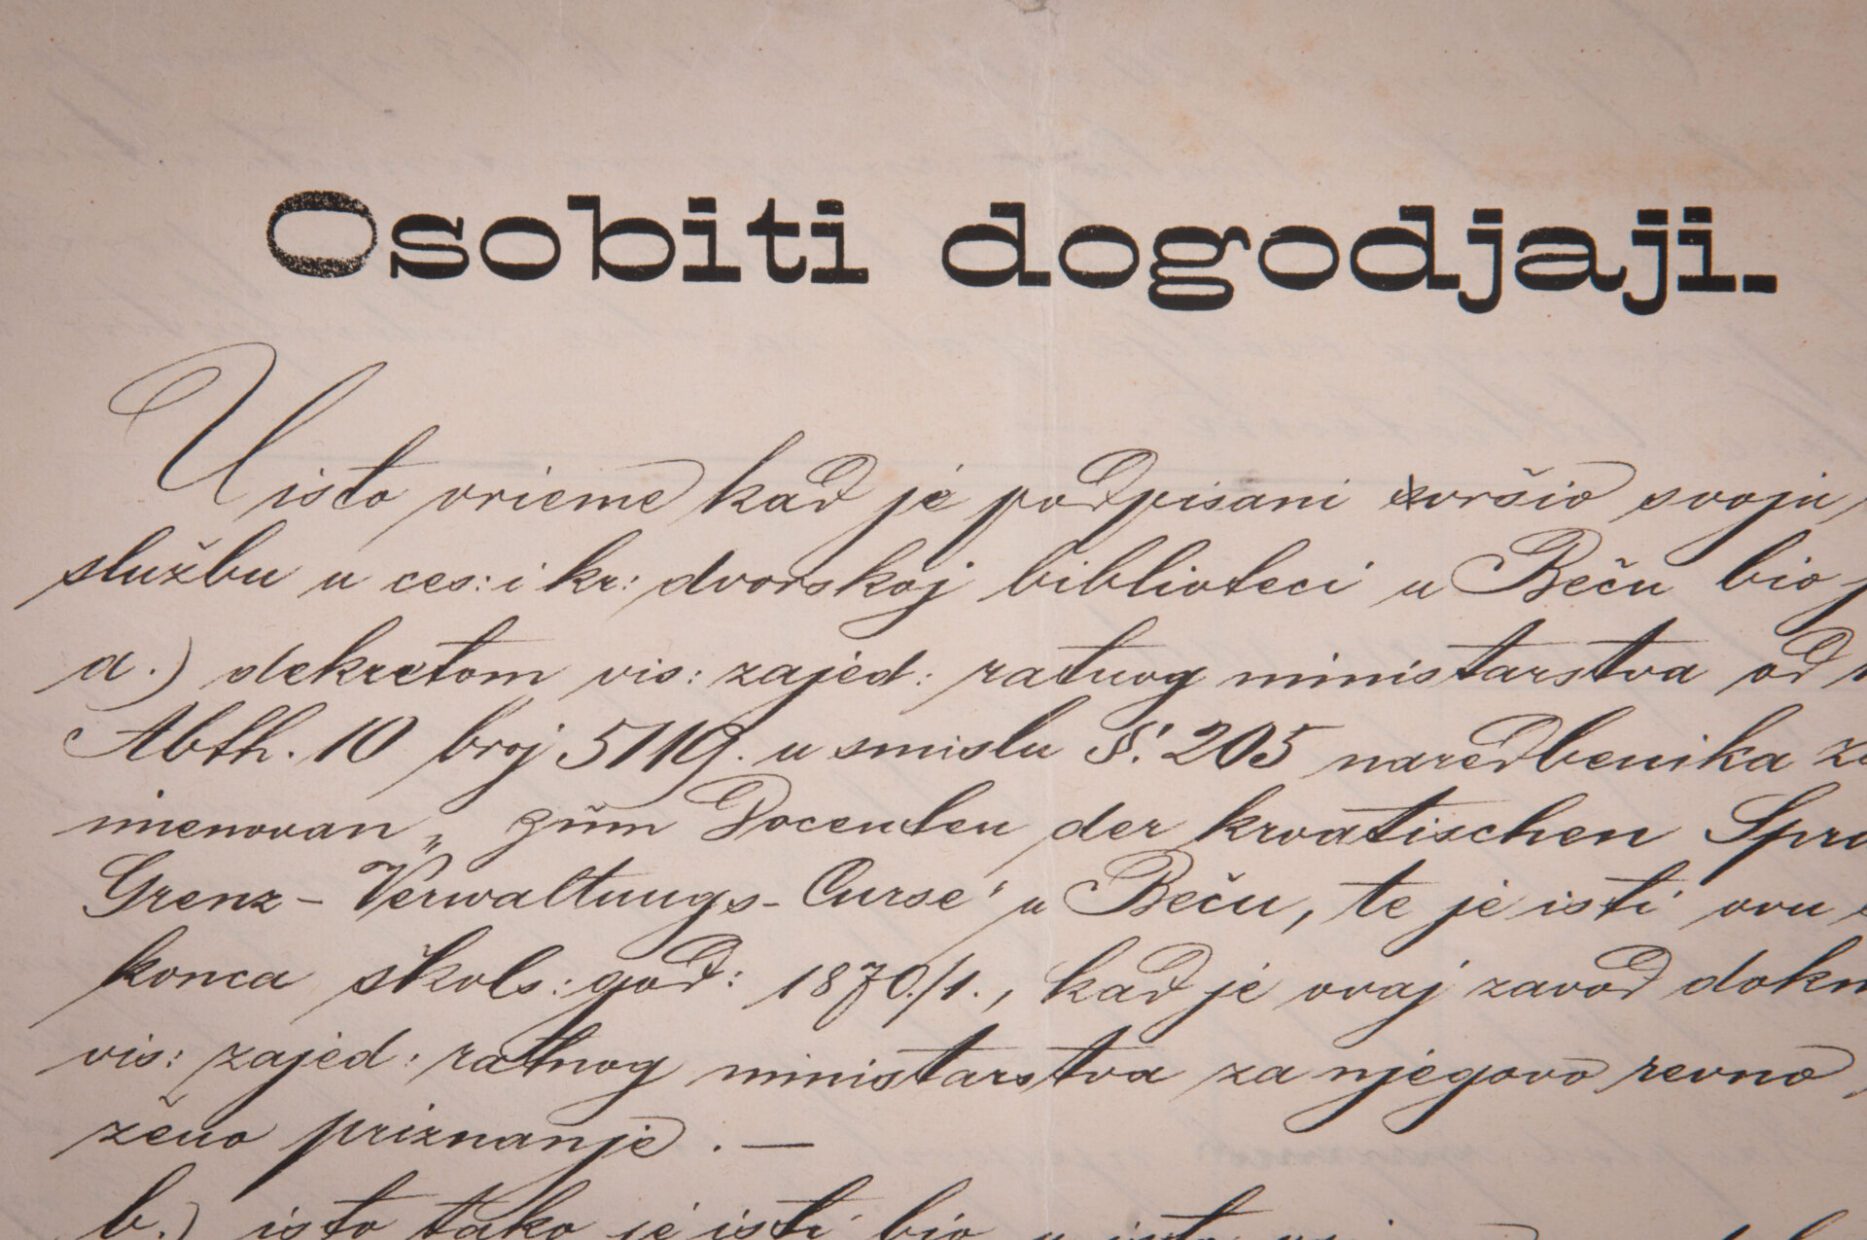 Osobiti dogodjaji.
U isto vrieme kad je podpisani svršio svoju
službu u ces: i kr: dvorskoj biblioteci u Beču bio
a.) dekretom vis: zajed: ratnog ministarstva od
Abth. 10 broj 5119. u smislu §: 205 naredbenika
imenovan „ zum Docenten der kroatischen
Grenz-Verwaltungs-Curse" u Beču, te je isti ovu
konca škols: god: 1870./1., kad je ovaj zavod
vis: zajed: ratnog ministarstva za njegovo revno
ženo priznanje. —
b.) isto tako je isti bio u isto